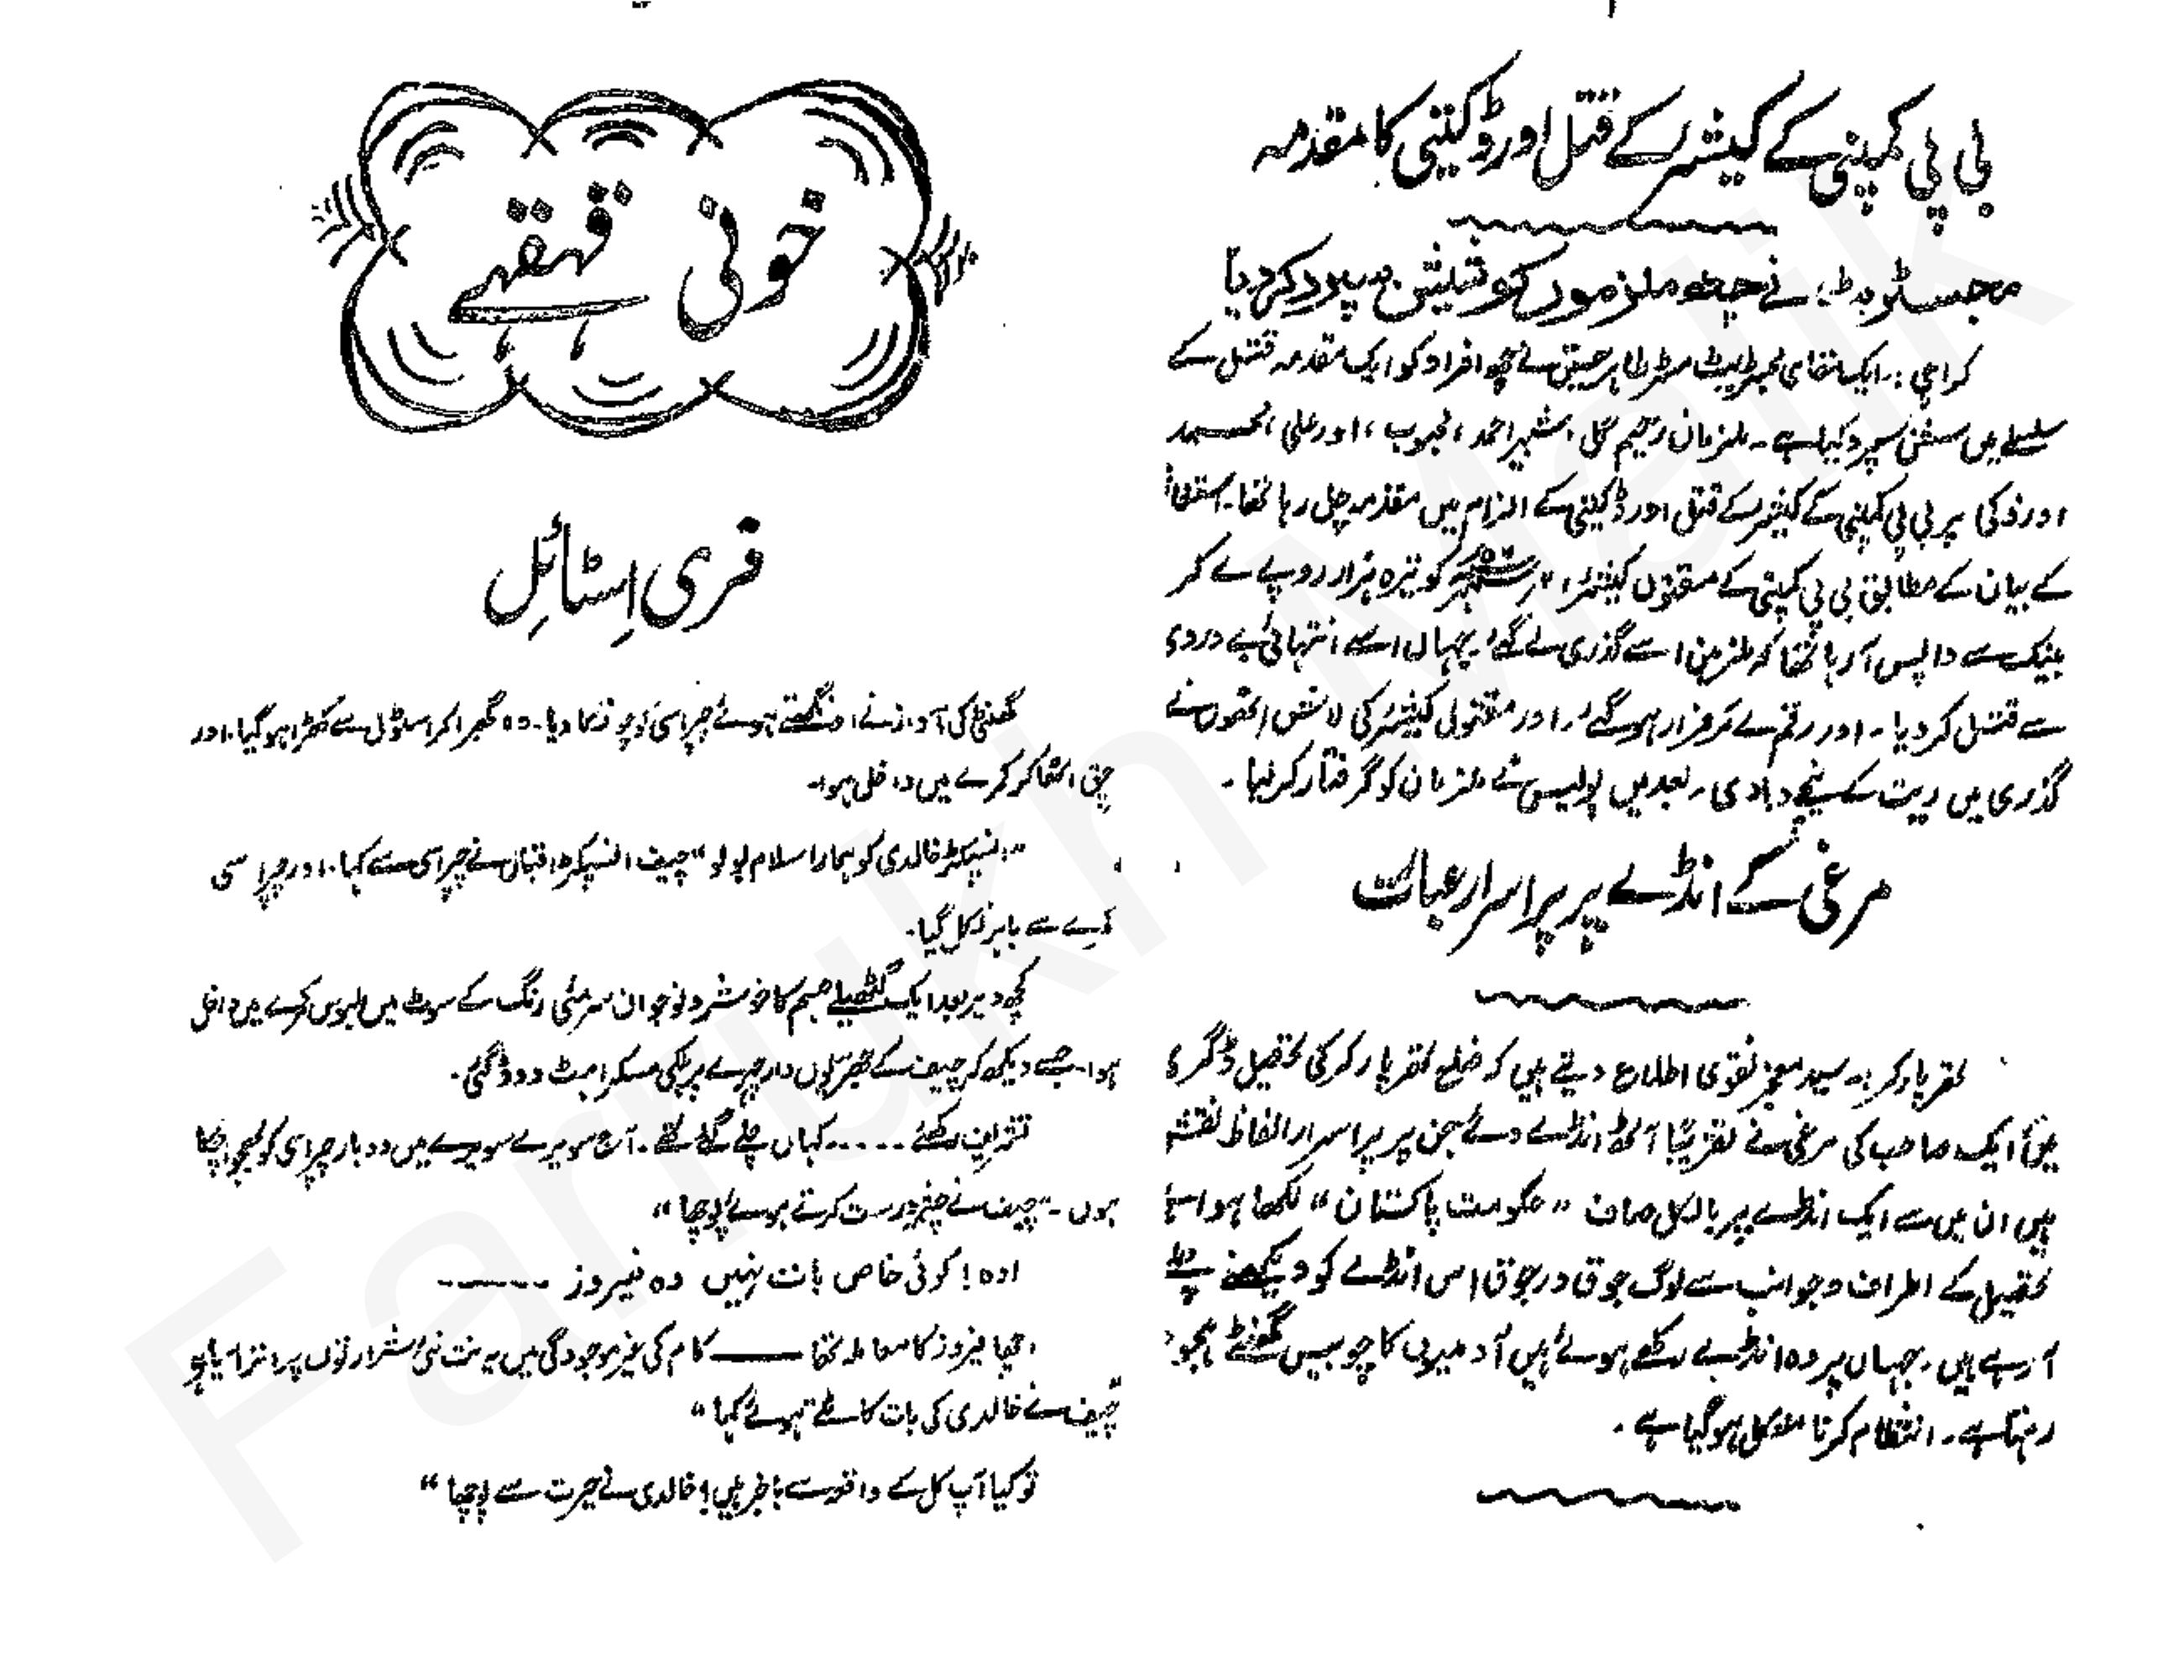 بی پی کمپنی کے کیشئر کے قتل اور ڈکیتی کا مقدمہ
مجسٹریٹ نے چھ ملزموں کو سپرد کر دیا
کراچی :۔ ایک مقامی مجسٹریٹ مسٹر طاہر حسین نے چھ افراد کو ایک مقدمہ قتل کے
سلسلے میں سشن سپرد کیا ہے ۔ ملزمان رحیم گل ، شبیر احمد ، محبوب ، اور علی احمد
اور ذکی پر بی پی کمپنی کے کیشئر کے قتل اور ڈکیتی کے الزام میں مقدمہ چل رہا تھا۔
کے بیان کے مطابق بی پی کمپنی کے مقتول کیشئر کو تیرہ ہزار روپے لے کر
بینک سے واپس آ رہا تھا کہ ملزمین اسے گذری لے گئے ۔ جہاں اسے انتہائی بے دردی
سے قتل کر دیا ۔ اور رقم لے کر فرار ہو گئے ۔ اور مقتول کیشئر کی لاش انھوں نے
گذری میں ریت کے نیچے دبا دی ۔ بعد میں پولیس نے ملزمان کو گرفتار کر لیا ۔
مرغی کے انڈے پر پراسرار عبارت
تھرپارکر :۔ سید معجز نقوی اطلاع دیتے ہیں کہ ضلع تھرپارکر کی تحصیل ڈگری
میں ایک صاحب کی مرغی نے تقریباً آٹھ انڈے دئے جن پر پراسرار الفاظ نقش
ہیں ان میں سے ایک انڈے پر بالکل صاف “ حکومت پاکستان “ لکھا ہوا ہے
تحصیل کے اطراف و جوانب سے لوگ جوق در جوق اس انڈے کو دیکھنے چلے
آ رہے ہیں ۔ جہاں پر وہ انڈے رکھے ہوئے ہیں آدمیوں کا چوبیس گھنٹے ہجوم
رہتا ہے ۔ انتظام کرنا مشکل ہو گیا ہے ۔
خونی قہقہے
فری اِسٹائل
گھنٹی کی آواز نے اونگھتے ہوئے چپراسی کو چونکا دیا ۔ وہ گھبرا کر اسٹول سے کھڑا ہو گیا ۔ اور
چق اٹھا کر کمرے میں داخل ہوا ۔
“ انسپکٹر خالدی کو ہمارا سلام بولو “ چیف انسپکٹر اقبال نے چپراسی سے کہا ۔ اور چپراسی
کمرے سے باہر نکل گیا ۔
کچھ دیر بعد ایک گٹھیلے جسم کا خوشرو نوجوان سرمئی رنگ کے سوٹ میں ملبوس کمرے میں داخل
ہوا ۔ جسے دیکھ کر چیف کے جھریوں دار چہرے پر ہلکی مسکراہٹ دوڈ گئی ۔
تشریف رکھئے ..... کہاں چلے گئے تھے ۔ آج سویرے سویرے میں دوبار چپراسی کو بھجوا چکا
ہوں ۔ “ چیف نے چشمہ درست کرتے ہوئے پوچھا “
اوہ ! کوئی خاص بات نہیں وہ فیروز ------
اچھا فیروز کا معاملہ تھا —— کام کی غیر موجودگی میں یہ نت نئی شرارتوں پر اتر آیا ہے
چیف نے خالدی کی بات کاٹتے ہوئے کہا “
تو کیا آپ کل کے واقعہ سے باخبر ہیں ! خالدی نے حیرت سے پوچھا “